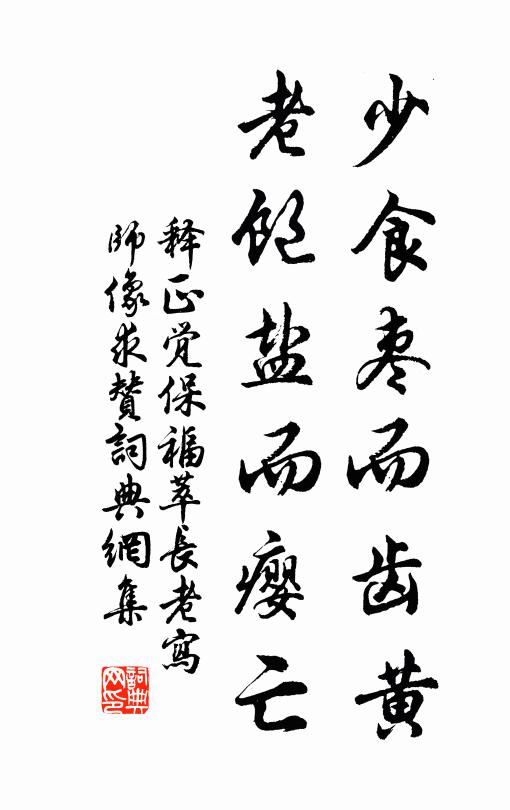 少食枣而齿黄
老饱盐而瘿亡
释正觉保福萃长老写
师像求赞词典網集
詞典网印